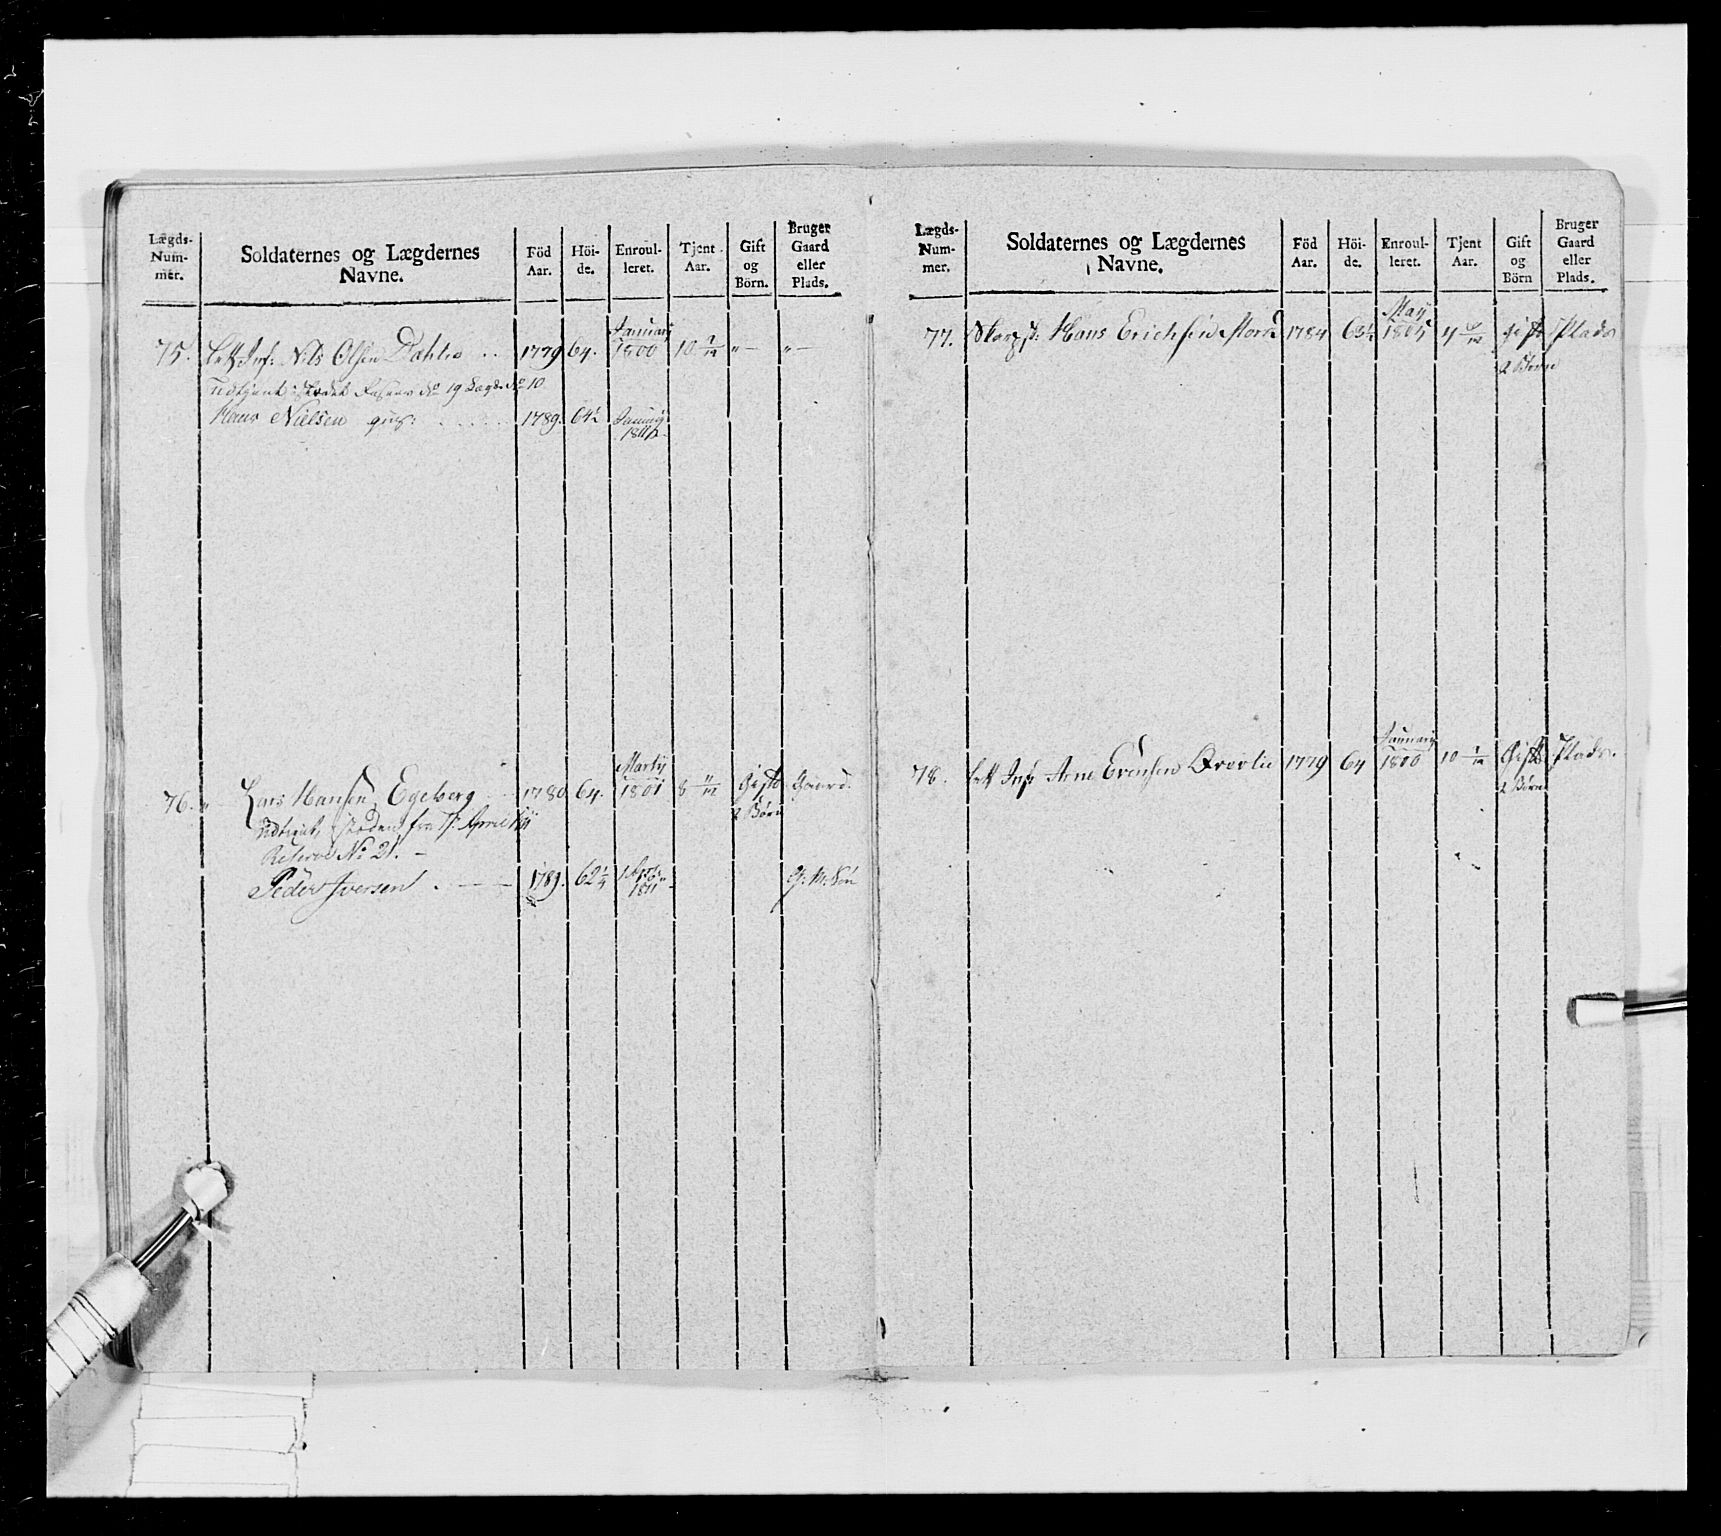 Lægds-Num-mer.
Soldaternes og Lægdernes Navne.
Föd Aar.
Höi-de.
Enroul-leret.
Tjent Aar.
Gift og Börn.
Bruger Gaard eller Plads.
75. Lett Inf: Nils Olsen Dahlie 1779 64. January 1800 10 " — " —
No 19 No 10
Hans Nielsen 1789. 64½ 1811
76. " Lars Hansen Egeberg 1780 64. Martij 1801 8 11/12 Gift 2 Börn Gaard.
Udtient, fra April 1811
Reserve No 21. —
Peder Iversen 1789. 62¼ 1811
Lægds-Num-mer.
Soldaternes og Lægdernes Navne.
Föd Aar.
Höi-de.
Enroul-leret.
Tjent Aar.
Gift og Börn
Bruger Gaard eller Plads.
77. Skarpsk: Hans Erichsen 1784 63½ May 1805 4 Gift Plads
2 Börn
78. Lett Inf: Arne Evensen 1779 64 January 1800 10 1/12 Gift Plads.
2 Börn